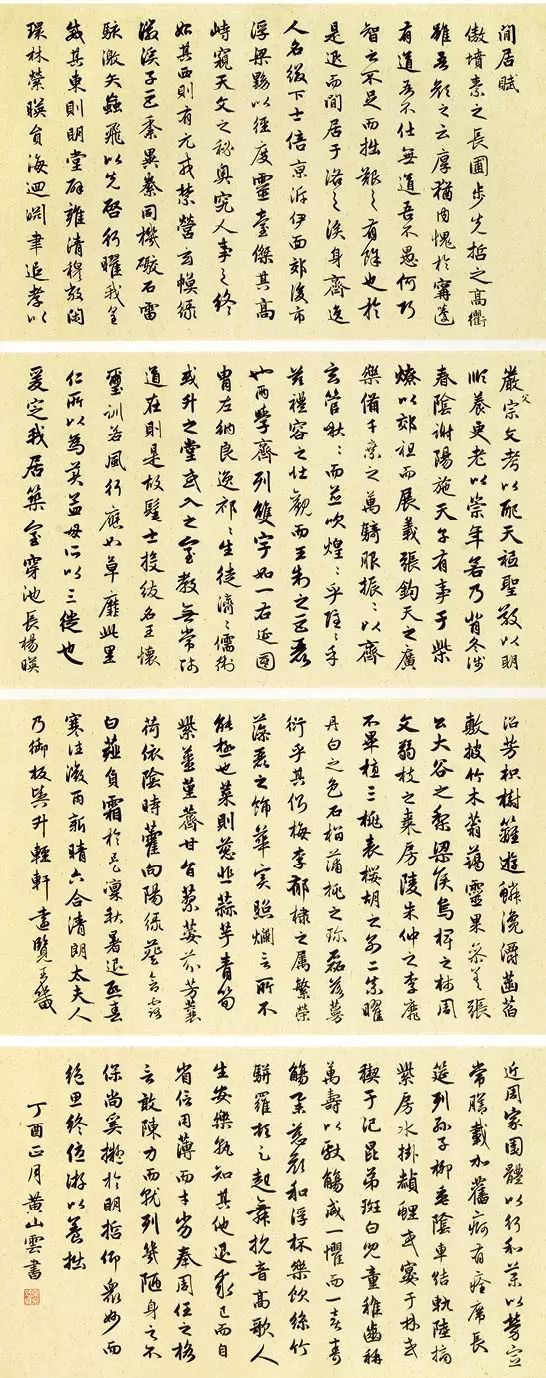 閒居賦
傲墳素之長圃步先哲之高衢
雖吾顏之云厚猶內愧於甯蘧
有道吾不仕無道吾不愚何巧
智之不足而拙艱之有餘也於
是退而閒居于洛之涘身齊逸
人名綴下士倍京泝伊面郊後市
浮梁黝以徑度靈臺傑其高
峙窺天文之秘奧究人事之終
始其西則有元戎禁營玄幙綠
徽溪子巨黍異絭同機礮石雷
駭激矢蝱飛以先啓行曜我皇
威其東則明堂辟雍清穆敞閑
環林縈暎負海迴淵聿追孝以
嚴父宗文考以配天秪聖敬以明
順養更老以崇年若乃背冬涉
春陰謝陽施天子有事于柴
燎以郊祖而展義張鈞天之廣
樂備千乘之萬騎服振〻以齊
玄管啾〻而並吹煌〻乎隱〻乎
茲禮容之壯觀而王制之巨麗
也兩學齊列雙宇如一右延國
胄左納良逸祁〻生徒濟〻儒術
或升之堂或入之室教無常師
道在則是故髦士投紱名王懷
璽訓若風行應如草靡此里
仁所以為美孟母所以三徙也
爰定我居築室穿池長楊暎
沼芳枳樹籬遊鱗瀺灂菡萏
敷披竹木蓊藹靈果參差張
公大谷之梨梁侯烏椑之柿周
文弱枝之棗房陵朱仲之李靡
不畢植三桃表櫻胡之別二柰曜
丹白之色石榴蒲桃之珍磊落蔓
衍乎其側梅李郁棣之屬繁榮
藻麗之飾華實照爛言所不
能極也菜則葱韭蒜芋青筍
紫薑菫薺甘旨蓼荽芬芳蘘
荷依陰時藿向陽綠葵含露
白薤負霜於是凜秋暑退熙春
寒往微雨新晴六合清朗太夫人
乃御板輿升輕軒遠覽王畿
近周家園體以行和藥以勞宣
常膳載加舊痾有痊席長
筵列孫子柳垂陰車結軌陸摘
紫房水掛赬鯉或宴于林或
禊于汜昆弟斑白兒童稚齒稱
萬壽以獻觴咸一懼而一喜壽
觴舉慈顏和浮杯樂飲絲竹
駢羅頓足起舞抗音高歌人
生安樂孰知其他退求己而自
省信用薄而才劣奉周任之格
言敢陳力而就列幾陋身之不
保尚奚擬於明哲仰衆妙而
絕思終優游以養拙
丁酉正月黃山雲書